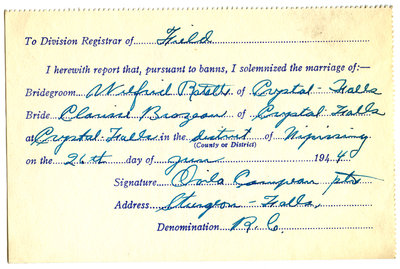 To Division Registrar of Field
I herewith report that, pursuant to banns, I solemnized the marriage of:—
Bridegroom Wilfrid of Crystal-Falls
Bride Clarisse of Crystal Falls
at Crystal-Falls in the district of Nipissing
(County or District)
on the 26th day of June 1944
Signature Ovila Campeau ptr
Address Sturgeon-Falls,
Denomination R.C.